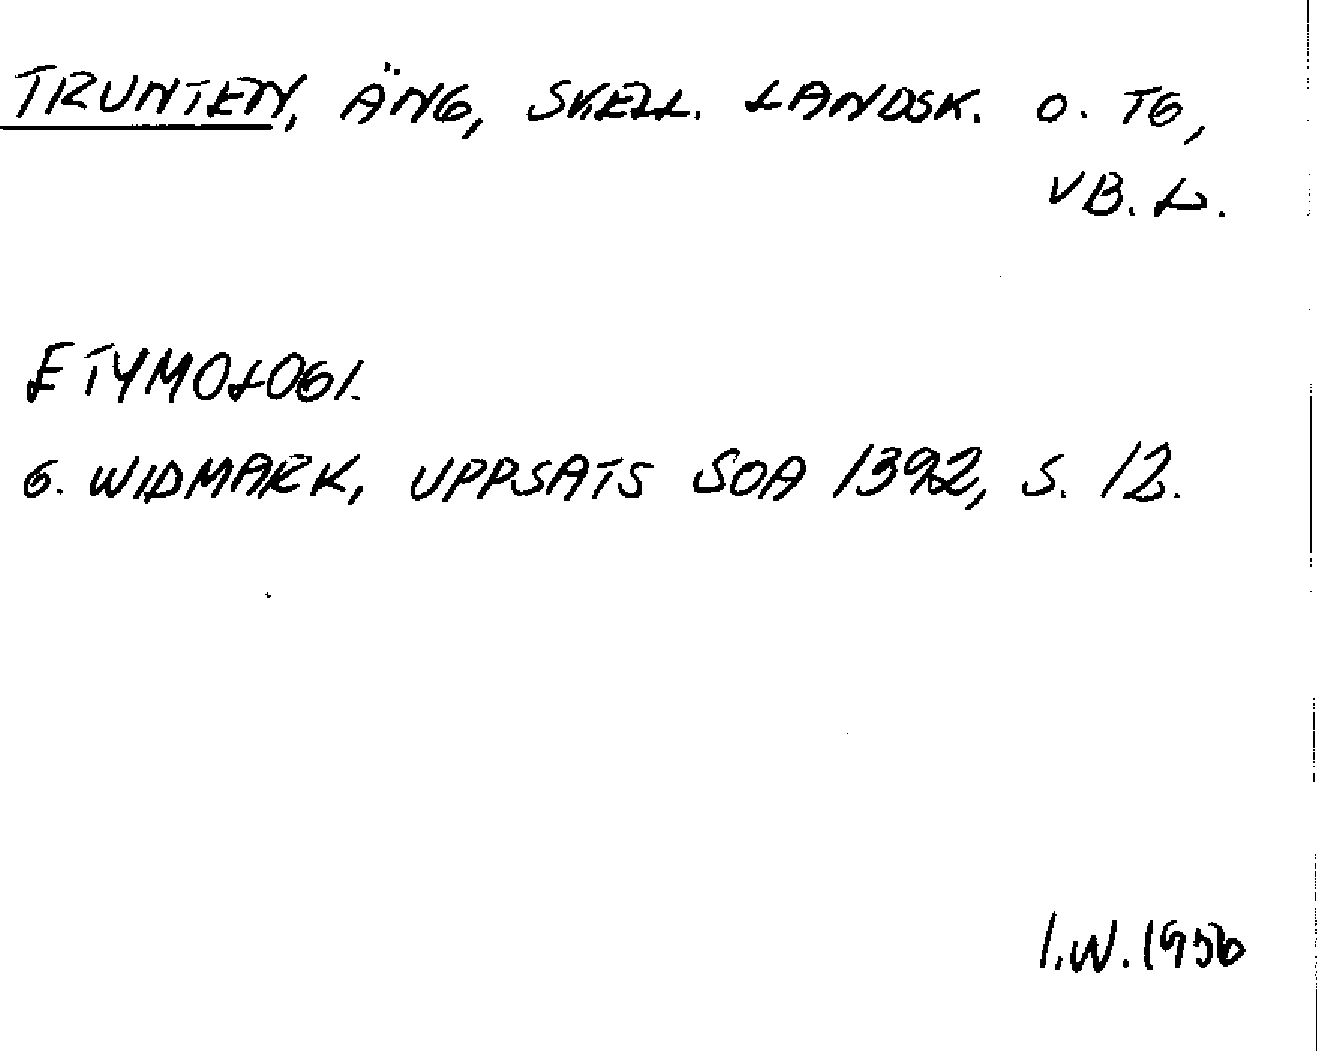 TRUNTEN, ÄNG, SKELL. LANDSK. O. TG,
VB. L.
ETYMOLOGI.
G. WIDMARK, UPPSATS SOA 1392, S. 12.
I.W. 1956